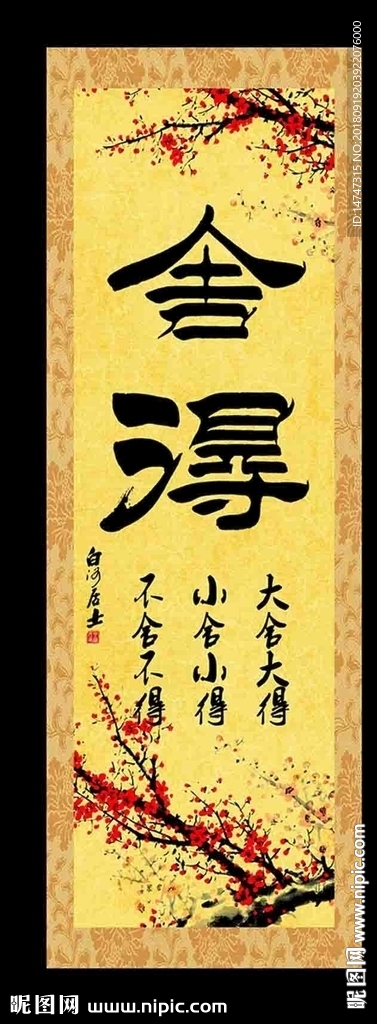 ID:14747315 NO:20180919203922076000
舍
得
大舍大得
小舍小得
不舍不得
白河居士
昵图网 www.nipic.com
昵图网 www.nipic.com